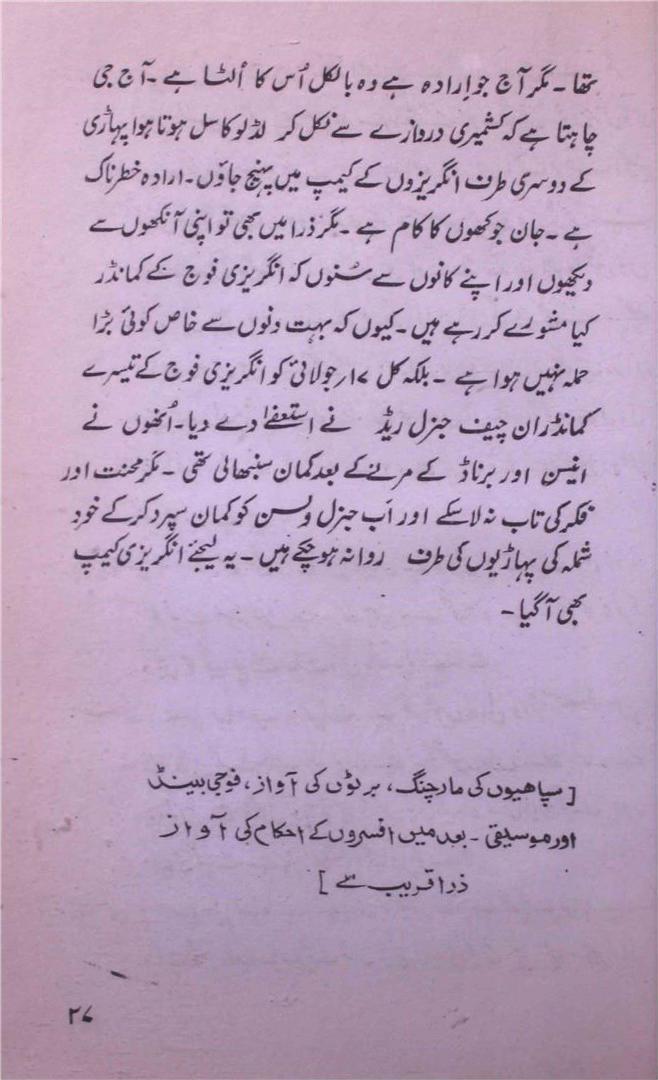 تھا ۔ مگر آج جو اِرادہ ہے وہ بالکل اُس کا اُلٹا ہے ۔ آج جی
چاہتا ہے کہ کشمیری دروازے سے نکل کر لڈلو کاسل ہوتا ہوا پہاڑی
کے دوسری طرف انگریزوں کے کیمپ میں پہنچ جاؤں ۔ ارادہ خطرناک
ہے ۔ جان جوکھوں کا کام ہے ۔ مگر ذرا میں بھی تو اپنی آنکھوں سے
دیکھوں اور اپنے کانوں سے سُنوں کہ انگریزی فوج کے کمانڈر
کیا مشورے کر رہے ہیں ۔ کیوں کہ بہت دنوں سے خاص کوئی بڑا
حملہ نہیں ہوا ہے ۔ بلکہ کل ۱۷ جولائی کو انگریزی فوج کے تیسرے
کمانڈر ان چیف جنرل ریڈ نے استعفا دے دیا ۔ اُنھوں نے
اینسن اور برناڈ کے مرنے کے بعد کمان سنبھالی تھی ۔ مگر محنت اور
فکر کی تاب نہ لا سکے اور اَب جنرل ولسن کو کمان سپرد کر کے خود
شملہ کی پہاڑیوں کی طرف روانہ ہو چکے ہیں ۔ یہ لیجئے انگریزی کیمپ
بھی آ گیا ۔
[ سپاھیوں کی مارچنگ ، بوٹوں کی آواز ، فوجی بینڈ
اور موسیقی ۔ بعد میں افسروں کے احکام کی آواز
ذرا قریب سے ]
۲۷